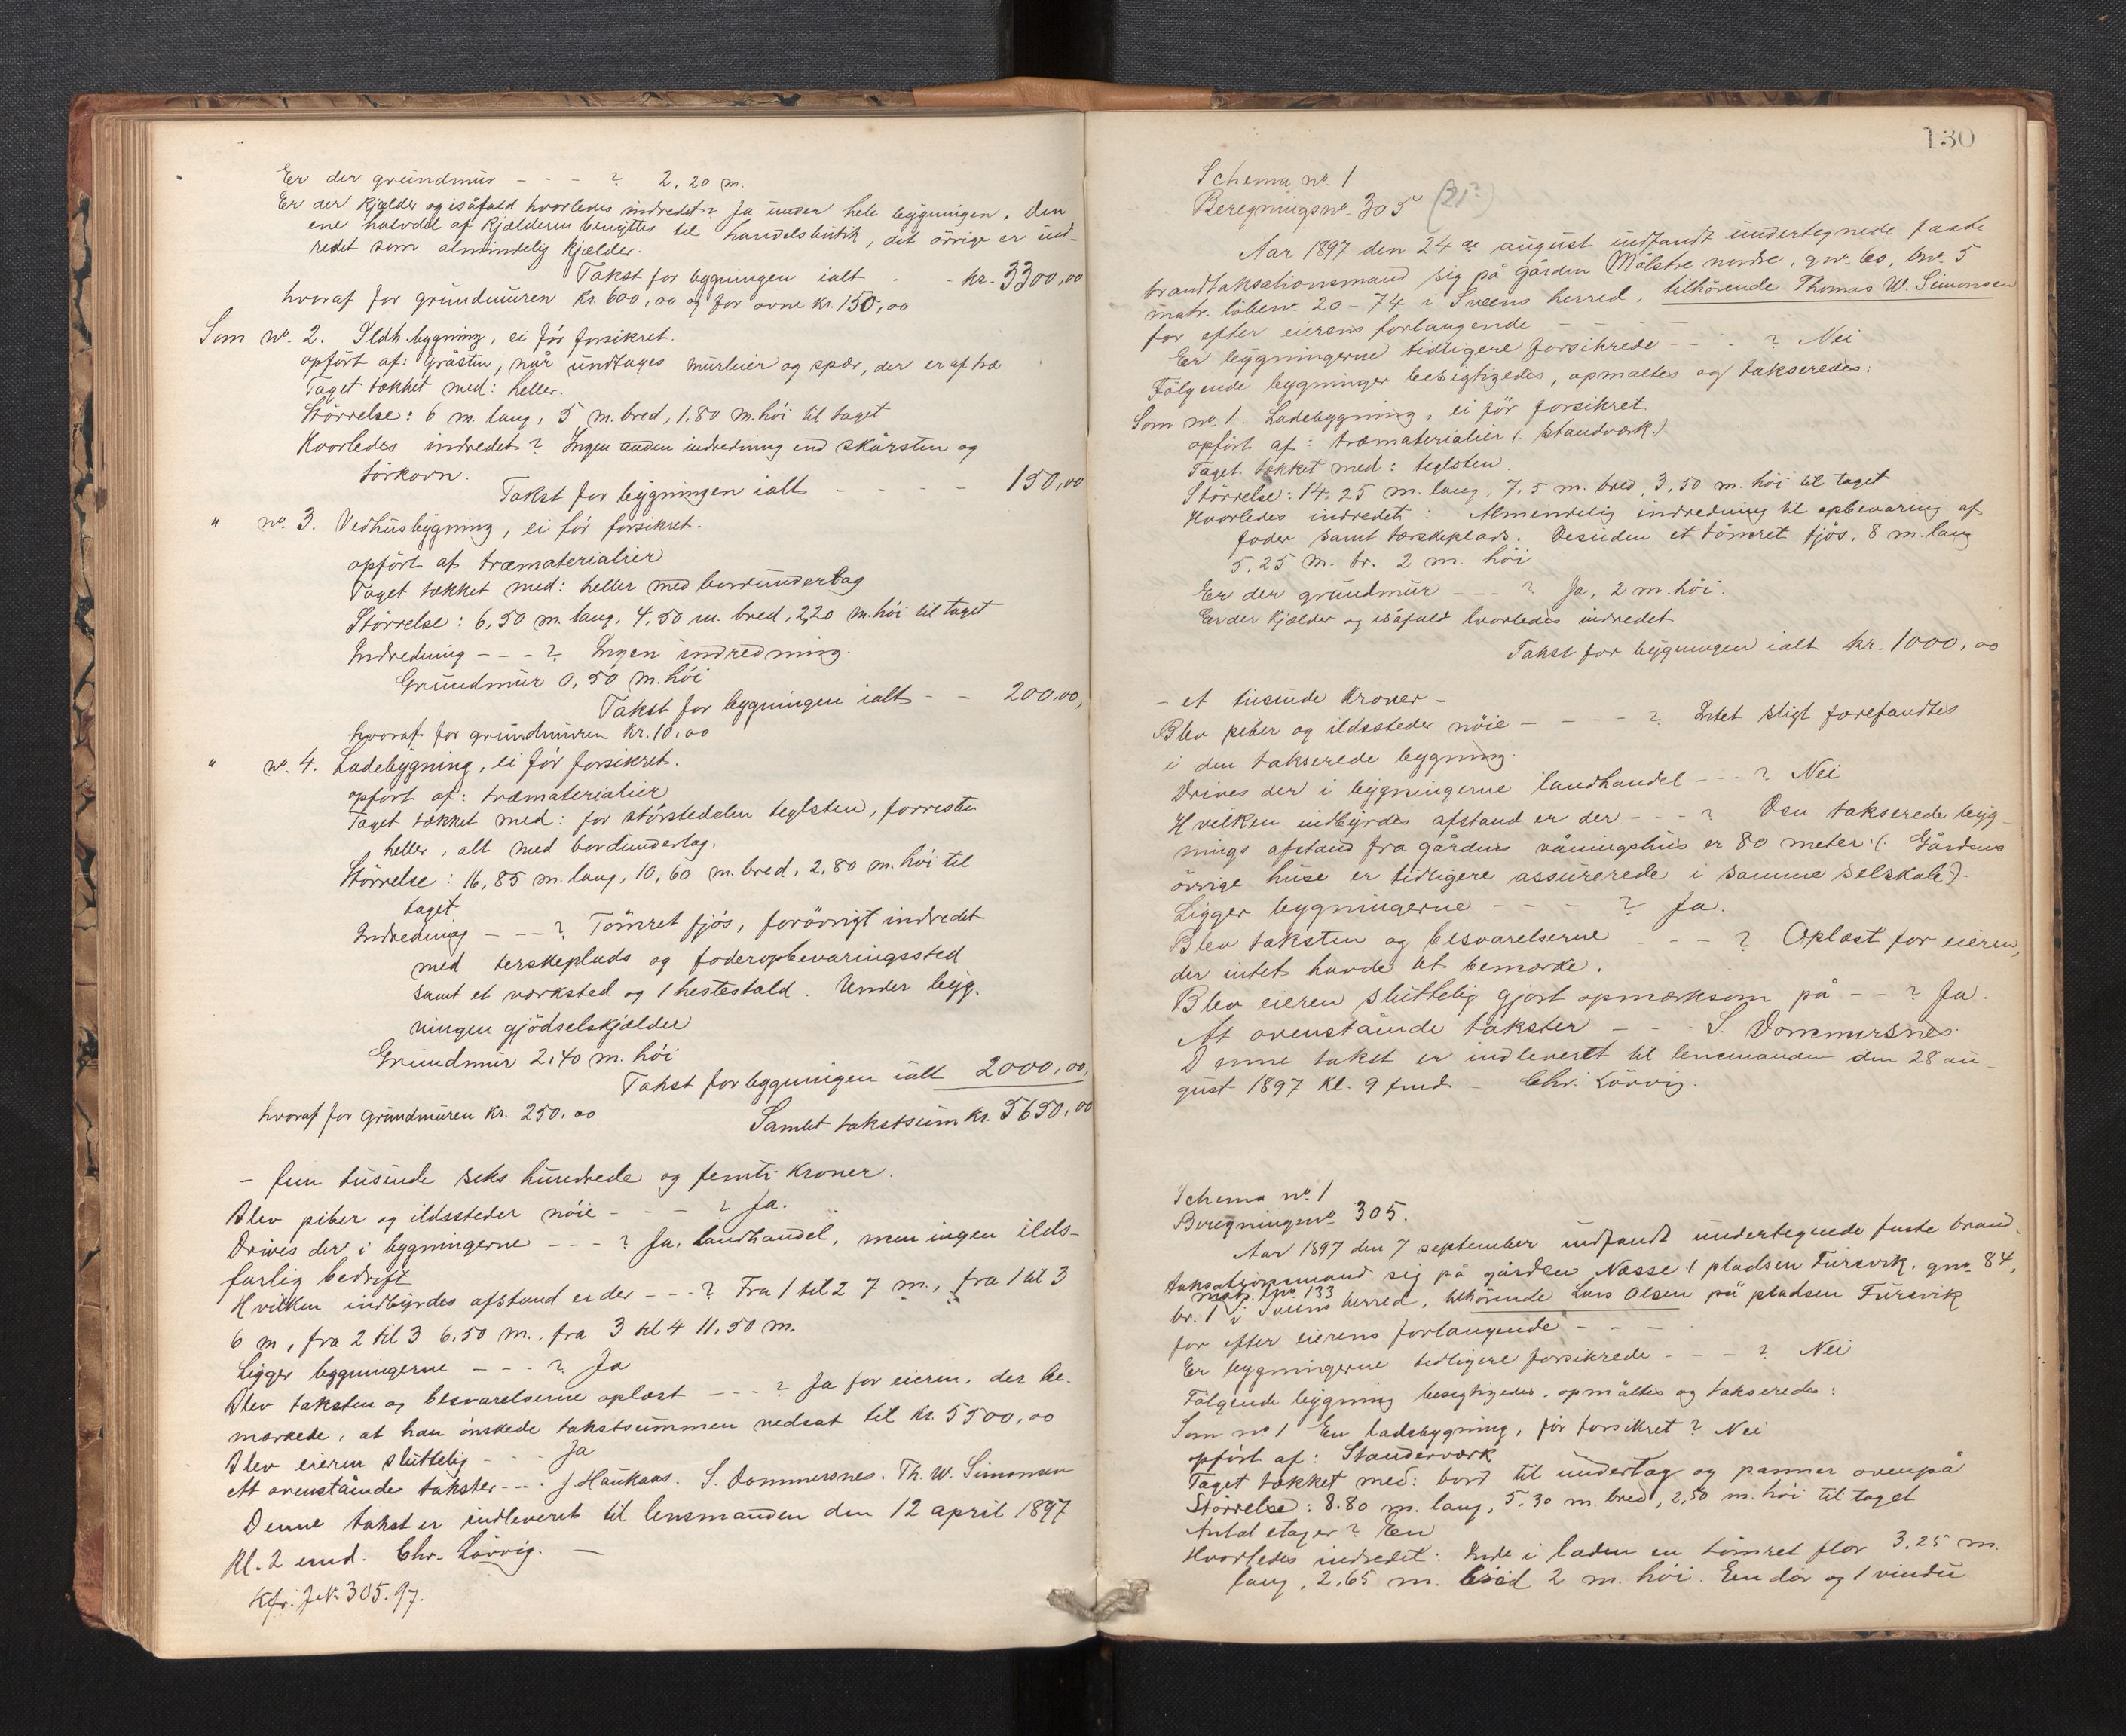 Er der grundmur - - - ? 2,20 m.
Er der kjelder og isåfald hvorledes indredet? Ja under hele bygningen. Den
ene halvdel af kjelderen benyttes til handelsbutik, det övrige er ind-
redet som almindelig kjelder.
Takst for bygningen ialt - - kr. 3300,00
hvoraf for grundmuren kr. 600,00 og for ovne kr. 150,00
Som no. 2. Ildh. bygning, ei för forsikret.
opfört af: Gråsten, når undtages murleier og spær, der er af træ
Taget tækket med: heller.
Störrelse: 6 m. lang, 5 m. bred, 1,80 m. höi til taget
Hvorledes indredet? Ingen anden indredning end skårsten og
törkovn.
Takst for bygningen ialt - - - - 150,00
" no. 3. Vedhusbygning, ei för forsikret.
opfört af træmaterialier
Taget tækket med: heller med bordundertag
Störrelse: 6,50 m. lang, 4,50 m. bred, 2,20 m. höi til taget
Indredning - - - ? Ingen indredning.
Grundmur 0,50 m. höi
Takst for bygningen ialt - - 200,00,
hvoraf for grundmuren kr. 10,00
" no. 4. Ladebygning, ei för forsikret.
opfört af: træmaterialier
Taget tækket med: for störstedelen teglsten, forresten
heller, alt med bordundertag.
Störrelse: 16,85 m. lang, 10,60 m. bred, 2,80 m. höi til
taget
Indredning - - - ? Tömret fjös, forövrigt indredet
med terskeplads og foderopbevaringssted
samt et værksted og 1 hestestald. Under byg-
ningen gjödselskjælder
Grundmur 2,40 m. höi
Takst for bygningen ialt 2000,00,
hvoraf for grundmuren kr. 250,00
Samlet takstsum kr. 5650,00
- fem tusinde seks hundrede og femti kroner.
Blev piber og ildssteder nöie - - - ? Ja.
Drives der i bygningerne - - - ? Ja, landhandel, men ingen ilds-
farlig bedrift
Hvilken indbyrdes afstand er der - - - ? Fra 1 til 2 7 m., fra 1 til 3
6 m, fra 2 til 3 6,50 m., fra 3 til 4 11,50 m.
Ligger bygningerne - - - ? Ja
Blev taksten og besvarelserne oplæst - - - ? Ja for eieren, der be-
mærkede, at han önskede takstsummen nedsat til kr. 5500,00
Blev eieren sluttelig - - - Ja
At ovenstående takster - - - J Haukaas. S. Dommersnes. Th. W. Simonsen
Denne takst er indleveret til lensmanden den 12 april 1897
Kl. 2 emd. Chr. Lövvig. -
Kfr. J.N. 305.97.
130
Schema no. 1
Beregningsno. 305 (21?)
Aar 1897 den 24de august indfandt undertegnede faste
brandtaksationsmand sig på gården Målstre nordre, gno. 60, bno. 5
matr. löbeno. 20 - 74 i Sveens herred, tilhörende Thomas W. Simonsen
for efter eierens forlangende - - -
Er bygningerne tidligere forsikrede - - - ? Nei
Fölgende bygninger besigtigedes, opmaltes og takseredes:
Som no. 1. Ladebygning, ei för forsikret
opfört af: træmaterialier (: standværk:).
Taget tækket med: teglsten.
Störrelse: 14,25 m. lang, 7,5 m. bred, 3,50 m. höi til taget
Hvorledes indredet: Almendelig indredning til opbevaring af
foder samt tærskeplads. Desuden et tömret fjös, 8 m. lang
5,25 m. br. 2 m. höi
Er der grundmur - - - ? Ja, 2 m. höi.
Er der kjælder og isåfald hvorledes indredet
Takst for bygningen ialt kr. 1000,00
- et tusinde kroner -
Blev piber og ildssteder nöie - - - - ? Intet sligt forefandtes
i den takserede bygning.
Drives der i bygningerne landhandel - - - ? Nei
Hvilken indbyrdes afstand er der - - - ? Den takserede byg-
nings afstand fra gårdens våningshus er 80 meter. (: Gårdens
övrige huse er tidligere assurerede i samme selskab:).
Ligger bygningerne - - - ? Ja.
Blev taksten og besvarelserne - - - ? Oplæst for eieren,
der intet havde at bemærke.
Blev eieren sluttelig gjort opmærksom på - - ? Ja.
At ovenstående takster - - - S. Dommersnes.
Denne takst er indleveret til lensmanden den 28 au-
gust 1897 kl. 9 fmd. - Chr. Lövvig.
Schema no. 1
Beregningsno. 305.
Aar 1897 den 7 september indfandt undertegnede faste brand-
taksationsmand sig på gården Næsse, pladsen Fursvik, gno. 84,
matr. lno. 133
br. 1 i Sveens herred, tilhörende Lars Olsen på pladsen Fursvik
for efter eierens forlangende - - -
Er bygningerne tidligere forsikrede - - - ? Nei
Fölgende bygning besigtigedes, opmåltes og takseredes:
Som no. 1 En ladebygning, för forsikret? Nei
opfört af: Standerværk
Taget tækket med: bord til undertag og panner ovenpå
Störrelse: 8,80 m. lang, 5,30 m. bred, 2,50 m. höi til taget
Antal etager? En
Hvorledes indredet: Inde i laden en tömret flor 3,25 m.
lang, 2,65 m. bred 2 m. höi. En dör og 1 vindu